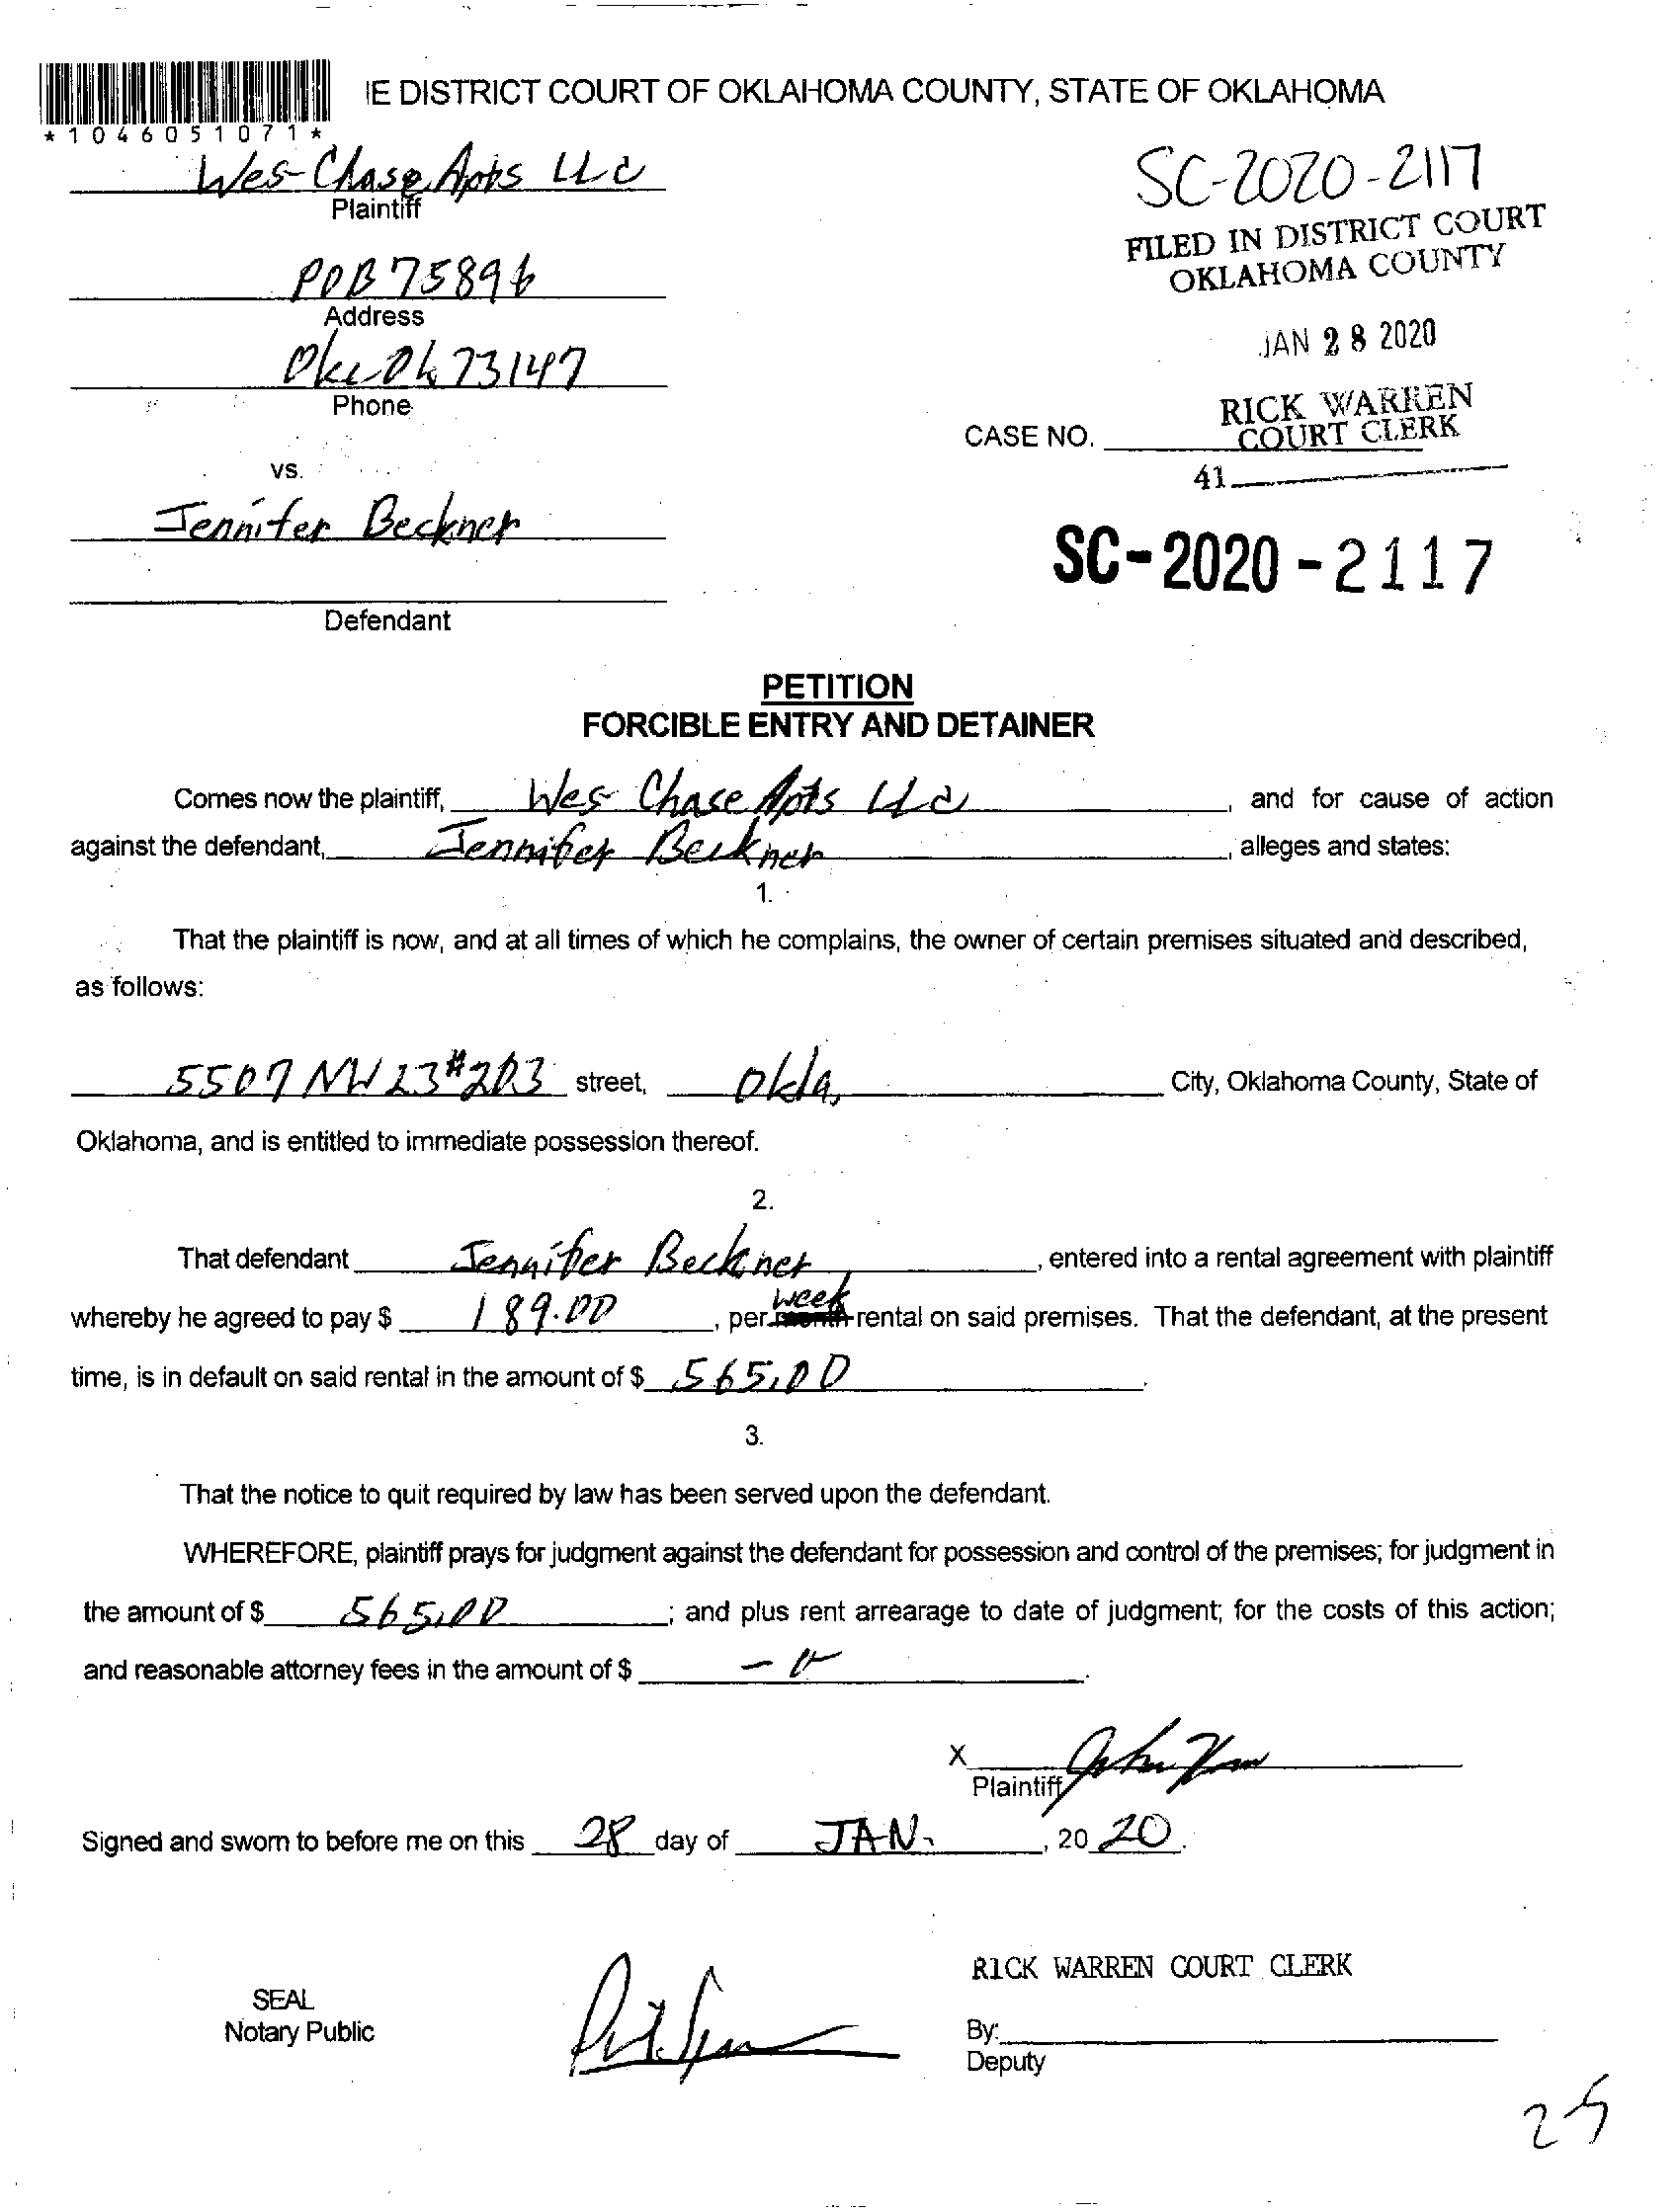 IE DISTRICT COURT OF OKLAHOMA COUNTY, STATE OF OKLAHOMA
*1046051071*
Wes-Chase Apts LLC
Plaintiff
SC-2020-2117
FILED IN DISTRICT COURT
OKLAHOMA COUNTY
POB 75896
Address
JAN 28 2020
Okc Ok 73147
Phone
RICK WARREN
COURT CLERK
CASE NO.
41
vs.
Jennifer Beckner
SC-2020-2117
Defendant
PETITION
FORCIBLE ENTRY AND DETAINER
Comes now the plaintiff, Wes Chase Apts LLC, and for cause of action
against the defendant, Jennifer Beckner, alleges and states:
1.
That the plaintiff is now, and at all times of which he complains, the owner of certain premises situated and described,
as follows:
5507 NW 23 #203 street, Okla, City, Oklahoma County, State of
Oklahoma, and is entitled to immediate possession thereof.
2.
That defendant Jennifer Beckner, entered into a rental agreement with plaintiff
whereby he agreed to pay $ 189.00, per month week rental on said premises. That the defendant, at the present
time, is in default on said rental in the amount of $ 565.00.
3.
That the notice to quit required by law has been served upon the defendant.
WHEREFORE, plaintiff prays for judgment against the defendant for possession and control of the premises; for judgment in
the amount of $ 565.00; and plus rent arrearage to date of judgment; for the costs of this action;
and reasonable attorney fees in the amount of $
X
Plaintiff
Signed and sworn to before me on this 28 day of JAN., 20 20.
RICK WARREN COURT CLERK
SEAL
Notary Public
By:
Deputy
25